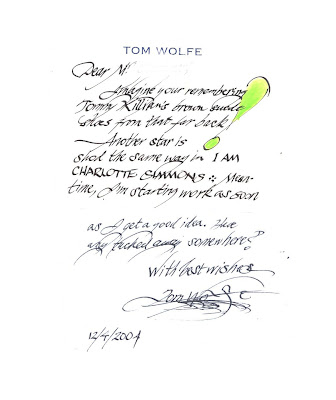 TOM WOLFE
Dear M
Imagine your remembering
Tommy Killian's brown suede
shoes from that far back!
—Another star is
shod the same way in I AM
CHARLOTTE SIMMONS :: Mean-
time, I'm starting work as soon
as I get a good idea. Have
any tucked away somewhere?
With best wishes
Tom Wolfe
12/4/2004